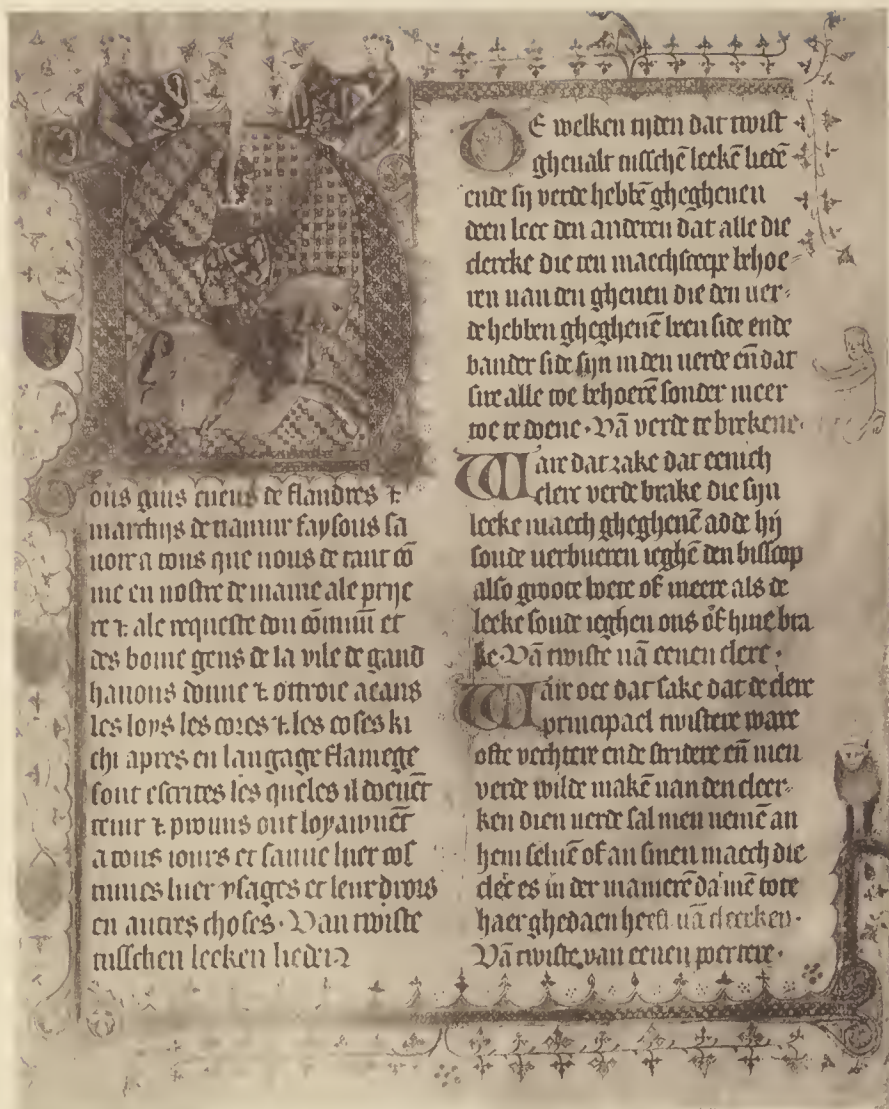 ous guis cuens de flandres ⁊
marchijs de namur faysons sa
uoir a tous que nous de tant cō
me en nostre demaine ale prije
re ⁊ ale requeste dou cōmun et
des boine gens de la vile de gand
hauons donne ⁊ ottroie acaus
les loys les cores ⁊ les coses ki
chi apres en langage flamege
sont escrites les queles il doeuēt
tenir ⁊ prouuns ont loyaumēt
a tous iours et sauue luer cos
tumes luer vsages et leur drois
en autres choses · Van twiste
tusschen leeken lieden
E welken tijden dat twist
gheualt tusschē leekē liedē
ende sij verde hebbē ghegheuen
deen leec den anderen dat alle die
clercke die ten maechscepe behoe
ren uan den gheuen die den uer-
de hebben ghegheuē deen side ende
dander side sijn in den uerde eñ dat
sire alle toe behoerē sonder meer
toe te doene · Vā verde te brekene ·
Waire dat zake dat eenich
clerc verde brake die sijn
leeke maech ghegheuē adde hij
soude uerbueren ieghē den bisscop
also groote boete of meere als de
leeke soude ieghen ons of hine bra
ke · Vā twiste uā eenen clerc ·
Waire oec dat sake dat de clerc
principael twistere ware
ofte vechtere ende stridere eñ men
verde wilde makē uan den cleer-
ken dien uerde sal men nemē an
hem seluē of an sinen maech die
clēc es in der manierē dāmē tote
haer ghedaen heeft uā cleerken ·
Vā twiste van eenen poertere ·